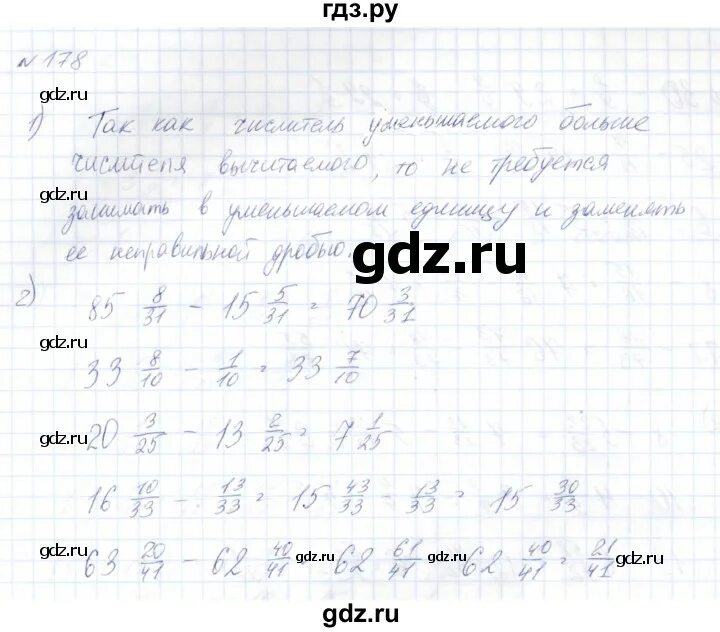 гдз.ру
№ 178
1) Так как числитель уменьшаемого больше
gdz.ru
числителя вычитаемого, то не требуется
занимать в уменьшаемом единицу и заменять
gdz.ru gdz.ru
ее неправильной дробью.
gdz.ru
2) 85 8/31 - 15 5/31 = 70 3/31
gdz.ru
33 8/10 - 1/10 = 33 7/10
20 3/25 - 13 2/25 = 7 1/25
gdz.ru gdz.ru
16 10/33 - 13/33 = 15 43/33 - 13/33 = 15 30/33
63 20/41 - 62 40/41 = 62 61/41 - 62 40/41 = 21/41
gdz.ru gdz.ru gdz.ru gdz.ru
gdz.ru